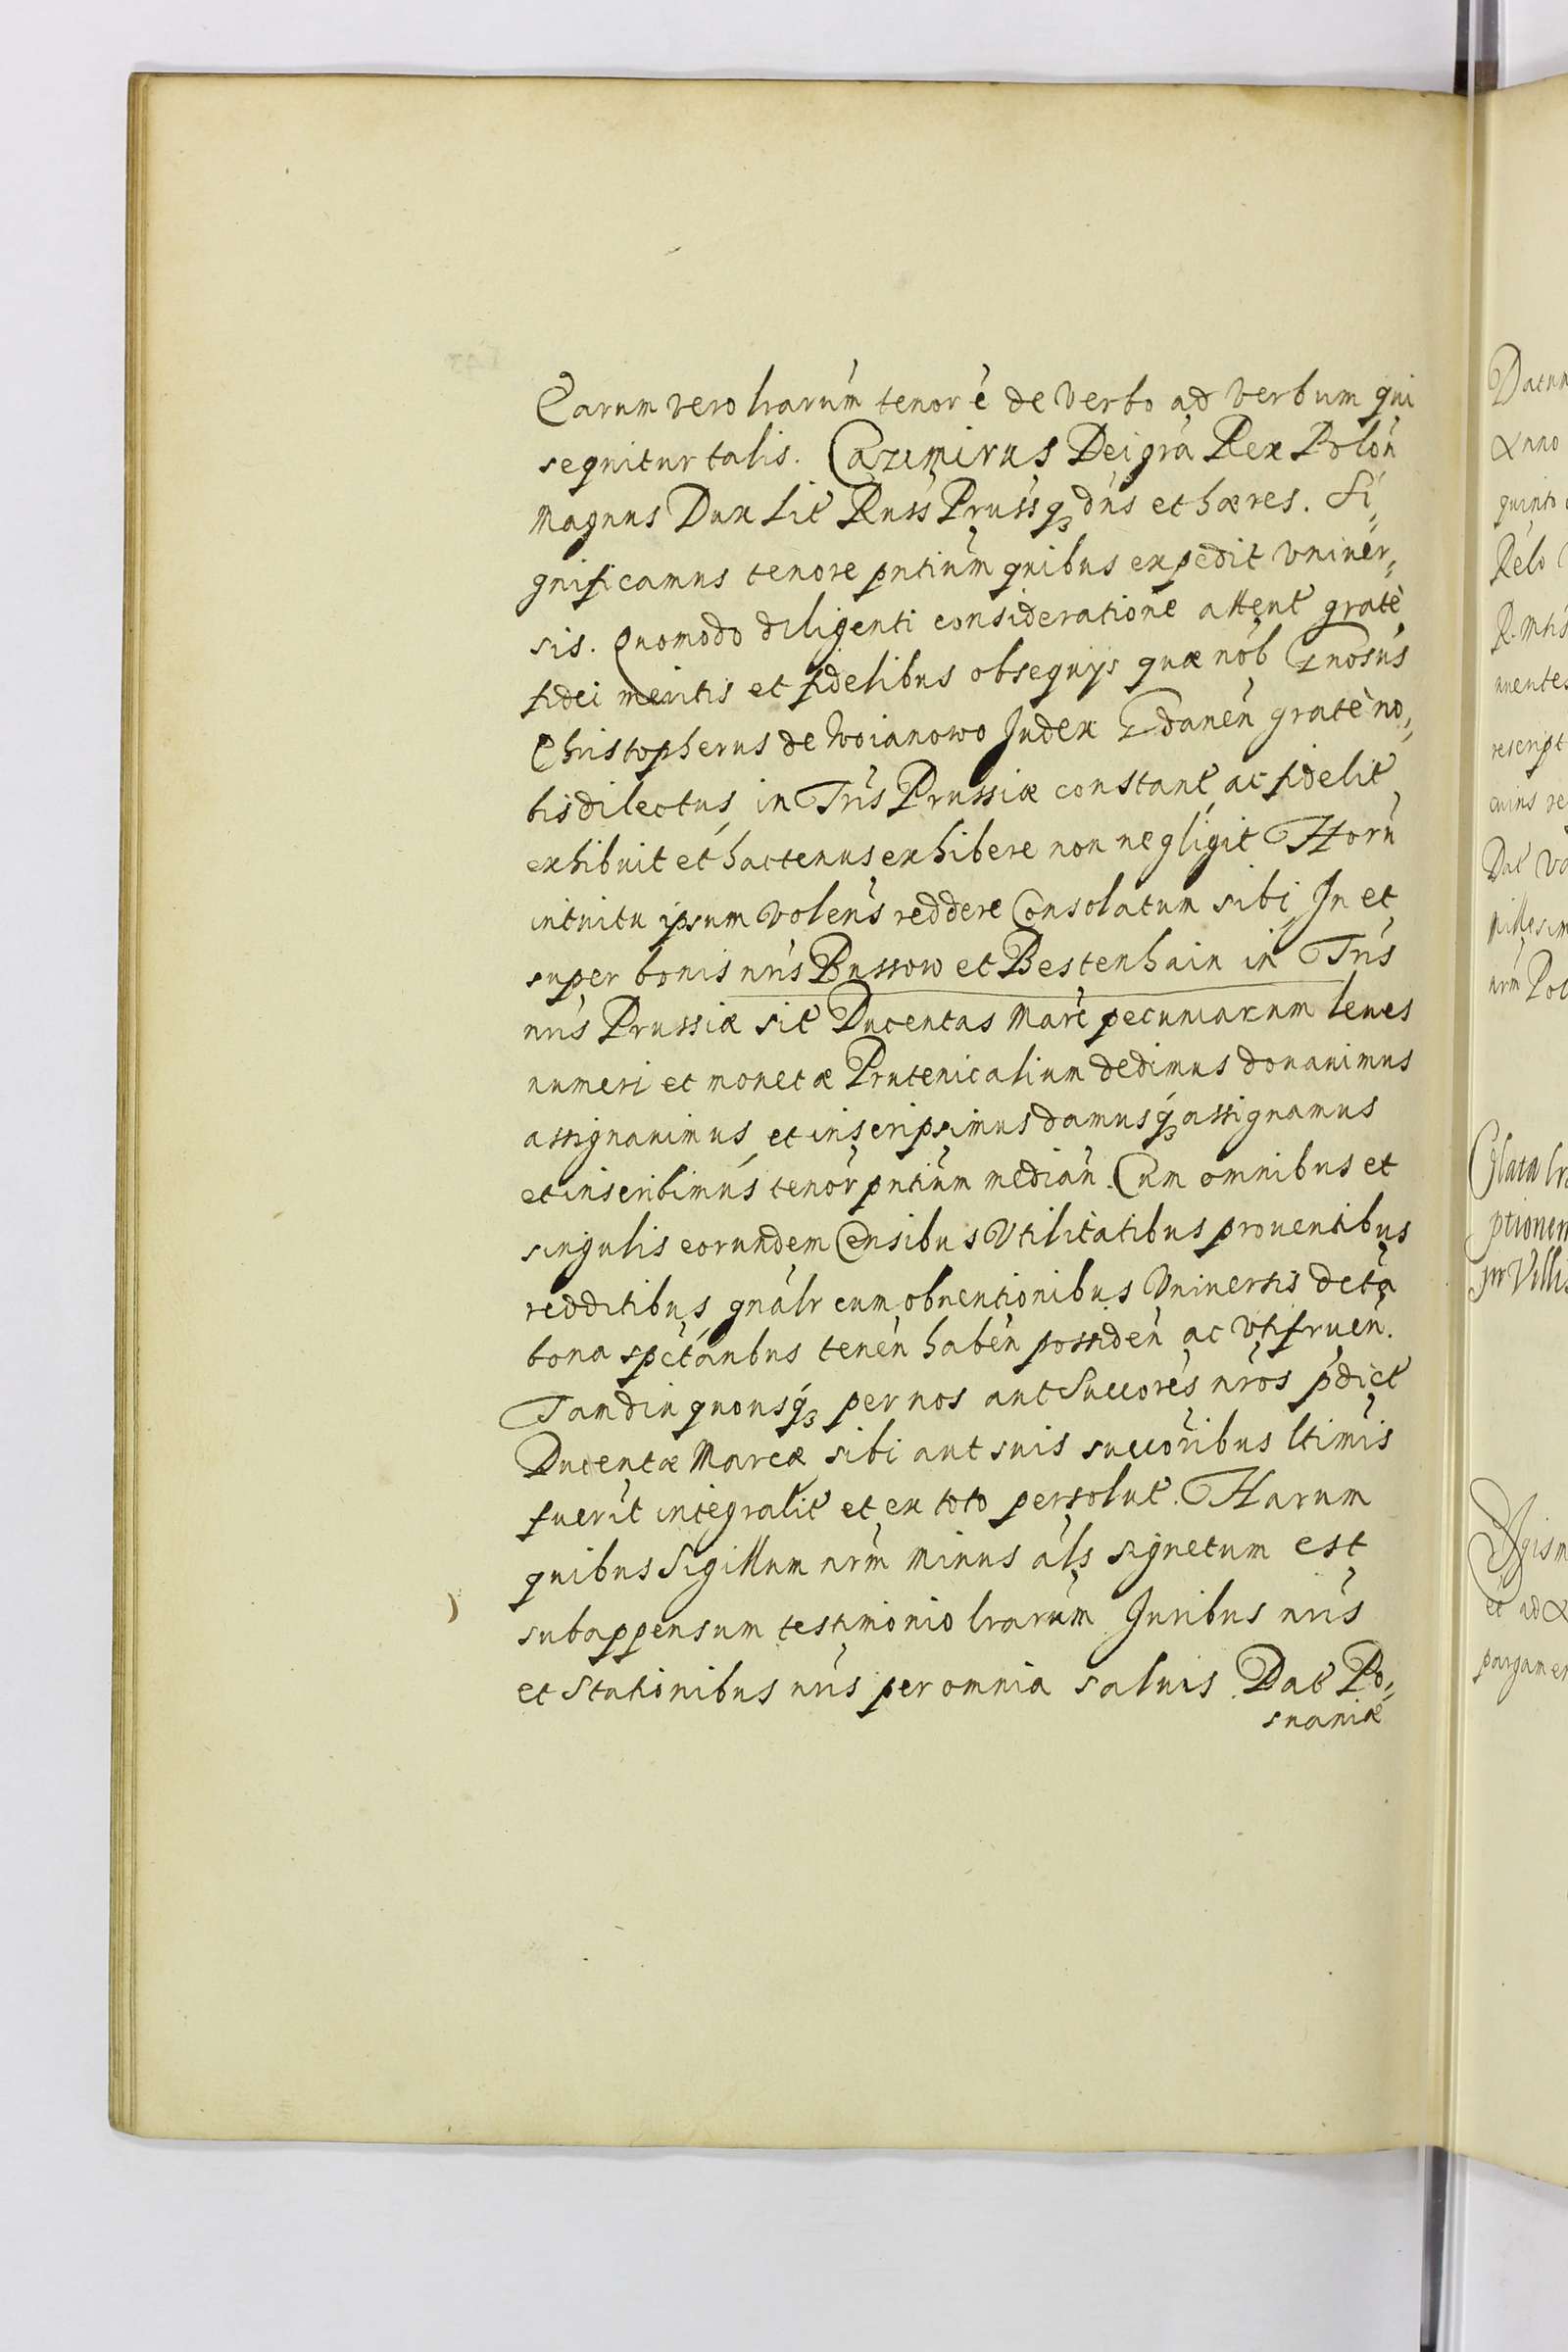 Earum vero lrarum tenor è de verbo ad verbum qui
sequitur talis. Cazimirus Dei gra Rex Polon
Magnus Dux Lit Russ Prussq dns et hæres. Si„
gnificamus tenore pntium quibus expedit vniuer„
sis. Quomodo diligenti consideratione attent gratè
fidei meritis et fidelibus obsequijs quæ nob Gnosus
Christopherus de Woianowo Judex Gdanen gratè no„
bis dilectus, in Tris Prussiæ constant, ac fidelit
exhibuit et hactenus exhibere non negligit Horu
intuitu ipsum volens reddere Consolatum sibi In et
super bonis nris Bussow et Bestenhain in Tris
nris Prussiæ sit Ducentas Marc pecuniarum leues
numeri et monetæ Prutenicalium dedimus donauimus
assignauimus, et inscripsimus damusq assignamus
et inscribimus tenor pntium median. Cum omnibus et
singulis eorundem Censibus Vtilitatibus prouentibus
redditibus, gnalr cum obuentionibus Vniuersis dcta
bona spctanbus tenen haben possiden ac vtifruen.
Tamdiu quousq per nos aut Succores nros pdict
Ducentæ Marcæ, sibi aut suis succoribus ltimis
fuerit integralit et ex toto persolut. Harum
quibus Sigillum nrm Minus als signetum est
subappensum testimonio lrarum Juribus nris
et Stationibus nris per omnia saluis. Dat Po„
snaniæ
Datum
Anno
quinto
Relo
R. Mtis
uentes
rescript
cuius re
Dat
Millesim
nrm Pol
ptionem
in Villis
et ad
pargamen